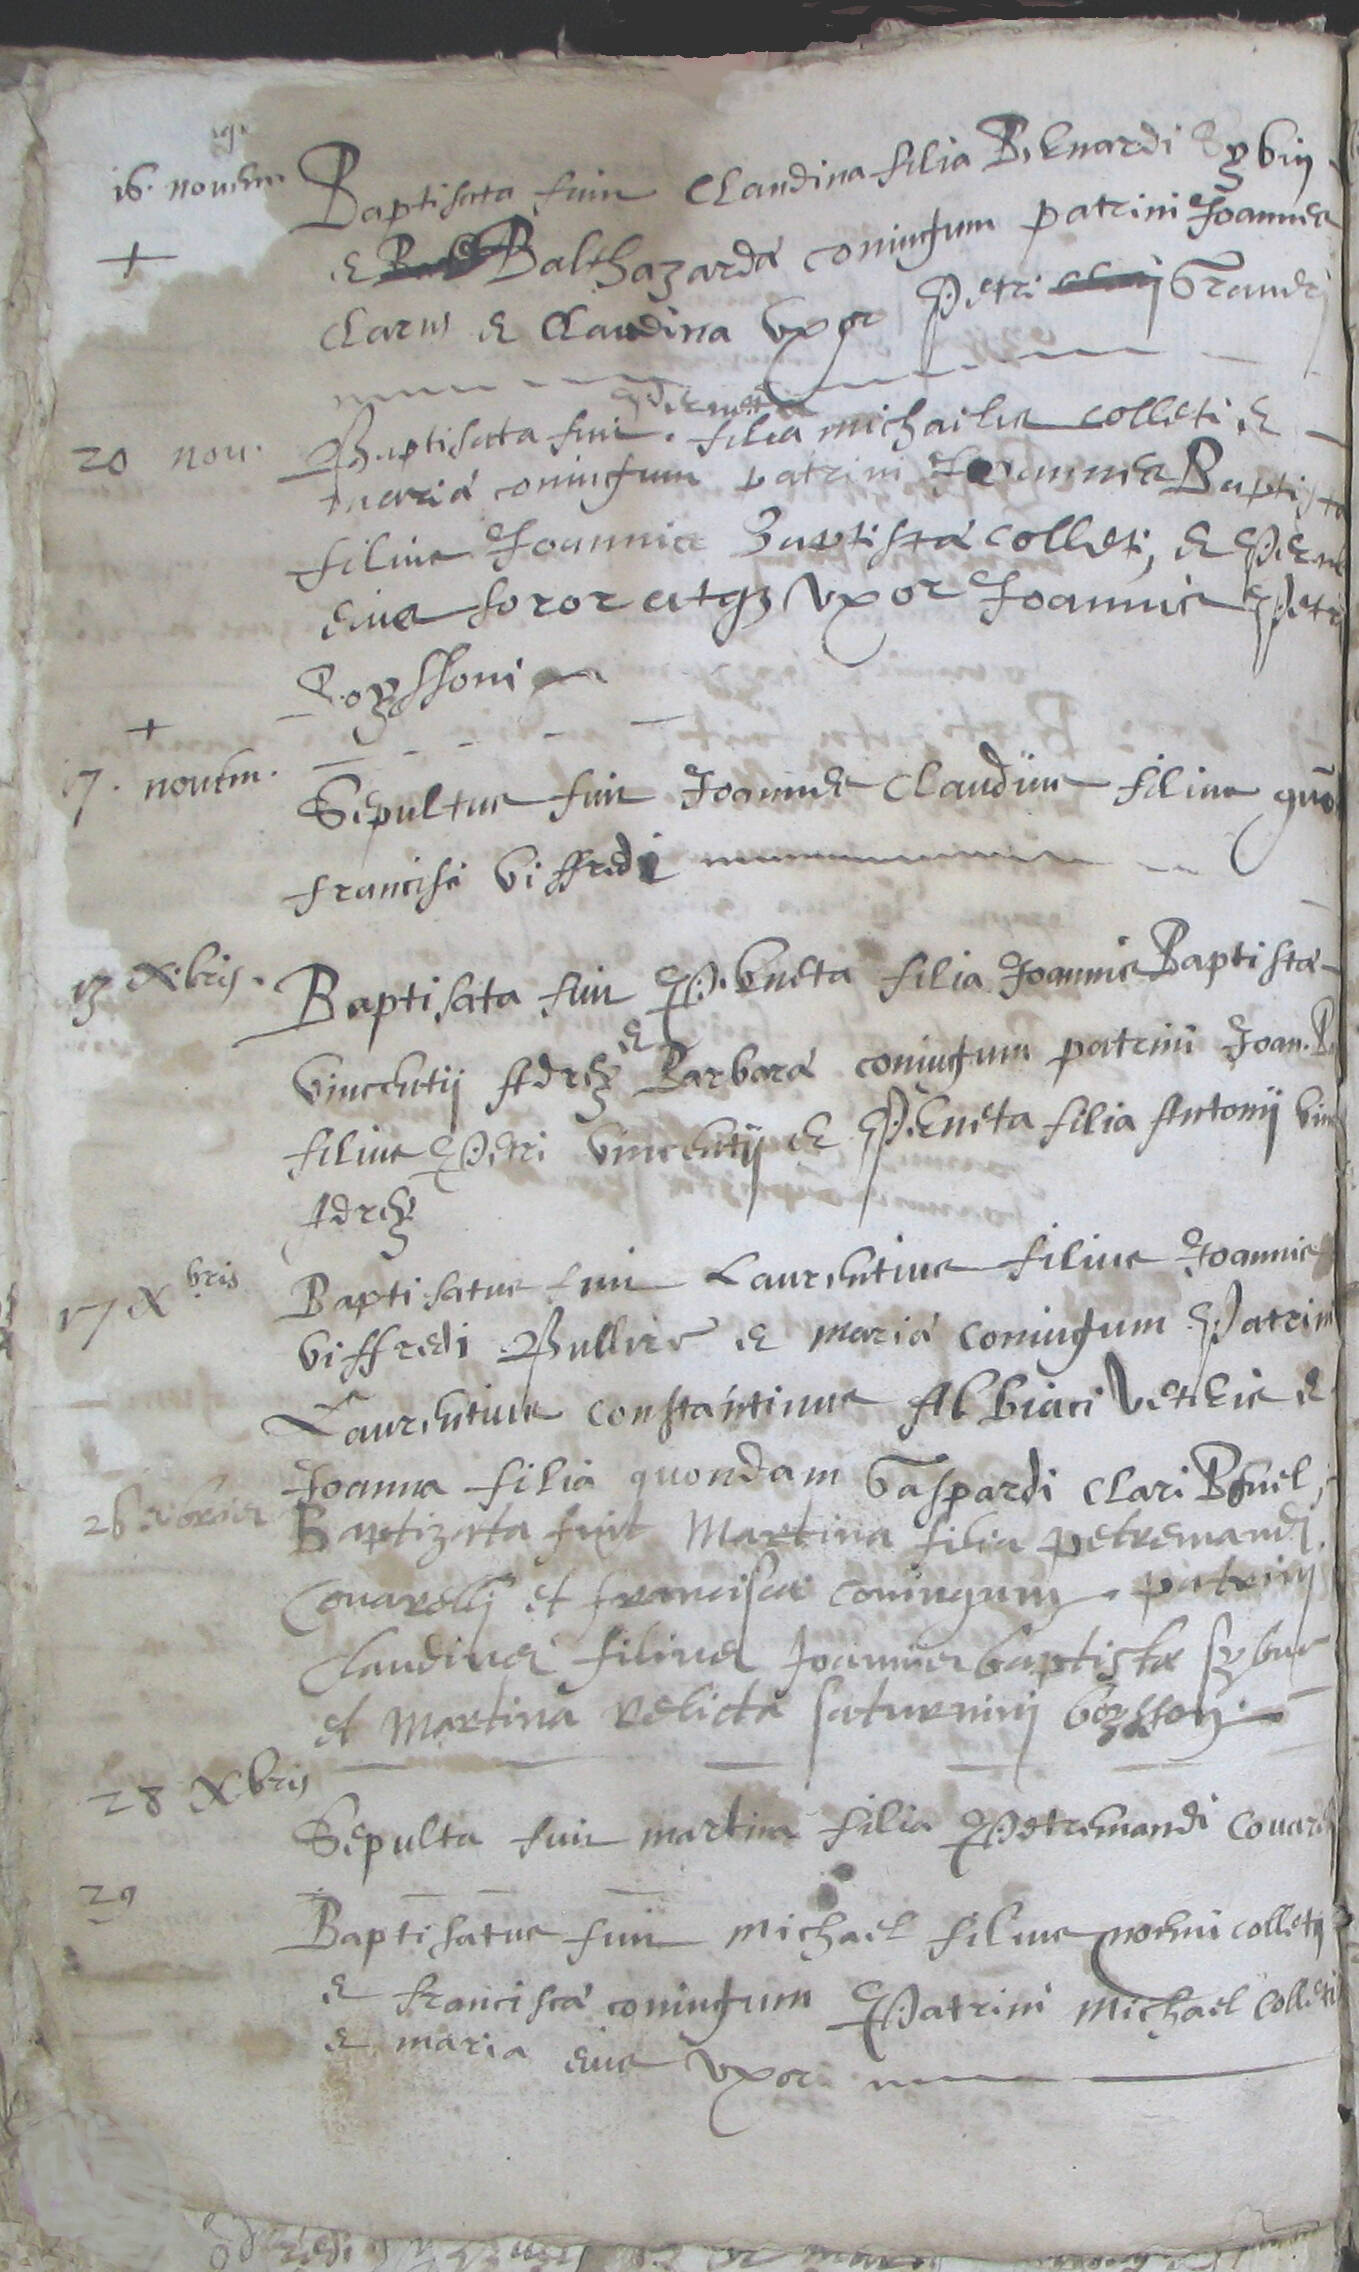 16. novem. Baptisata fuit Claudina filia Bernardi
& Balthazardæ coniugum patrini Joannes
Clarus & Claudina vxor Petri Grandi
Perneta
20 nov. Baptisata fuit. filia michaelis colleti &
mariæ coniugum patrini Joannes Baptista
filius Joannis Baptistæ colleti, &
eius soror atq3 vxor Joannis Petri
Boyssoni
17. novem. Sepultus fuit Joannes Claudius filius quon
francisci viffredi
13 Xbris. Baptisata fuit Perneta filia Joannis Baptistæ
vincentij Adrey & Barbaræ coniugum patrini Joan. B
filius Petri vincentij & Perneta filia Antonij vin
Adrey
17 Xbris Baptisatus fuit Laurentius filius Joannis
viffredi & mariæ coniugum Patrini
Laurentius constantinus Albiaci veteris &
Joanna filia quondam Gaspardi clari
26 Baptizata fuit Martina filia petremandi
Couarelli et franciscæ coniugum. patrini
Claudius filius Joannis baptistæ
et Martina relicta saturnini boysson.
28 Xbris Sepulta fuit martina filia Petremandi Couare
29 Baptisatus fuit michael filius colleti
& franciscæ coniugum Patrini michael colleti
& maria eius vxor.